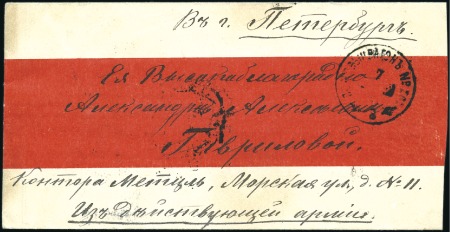 Въ г. Петербургъ.
Ея Высокоблагородію
Александрѣ Алексѣевнѣ
Гавриловой.
Контора Метцль, Морская ул, д. № 11.
Изъ Дѣйствующей арміи.